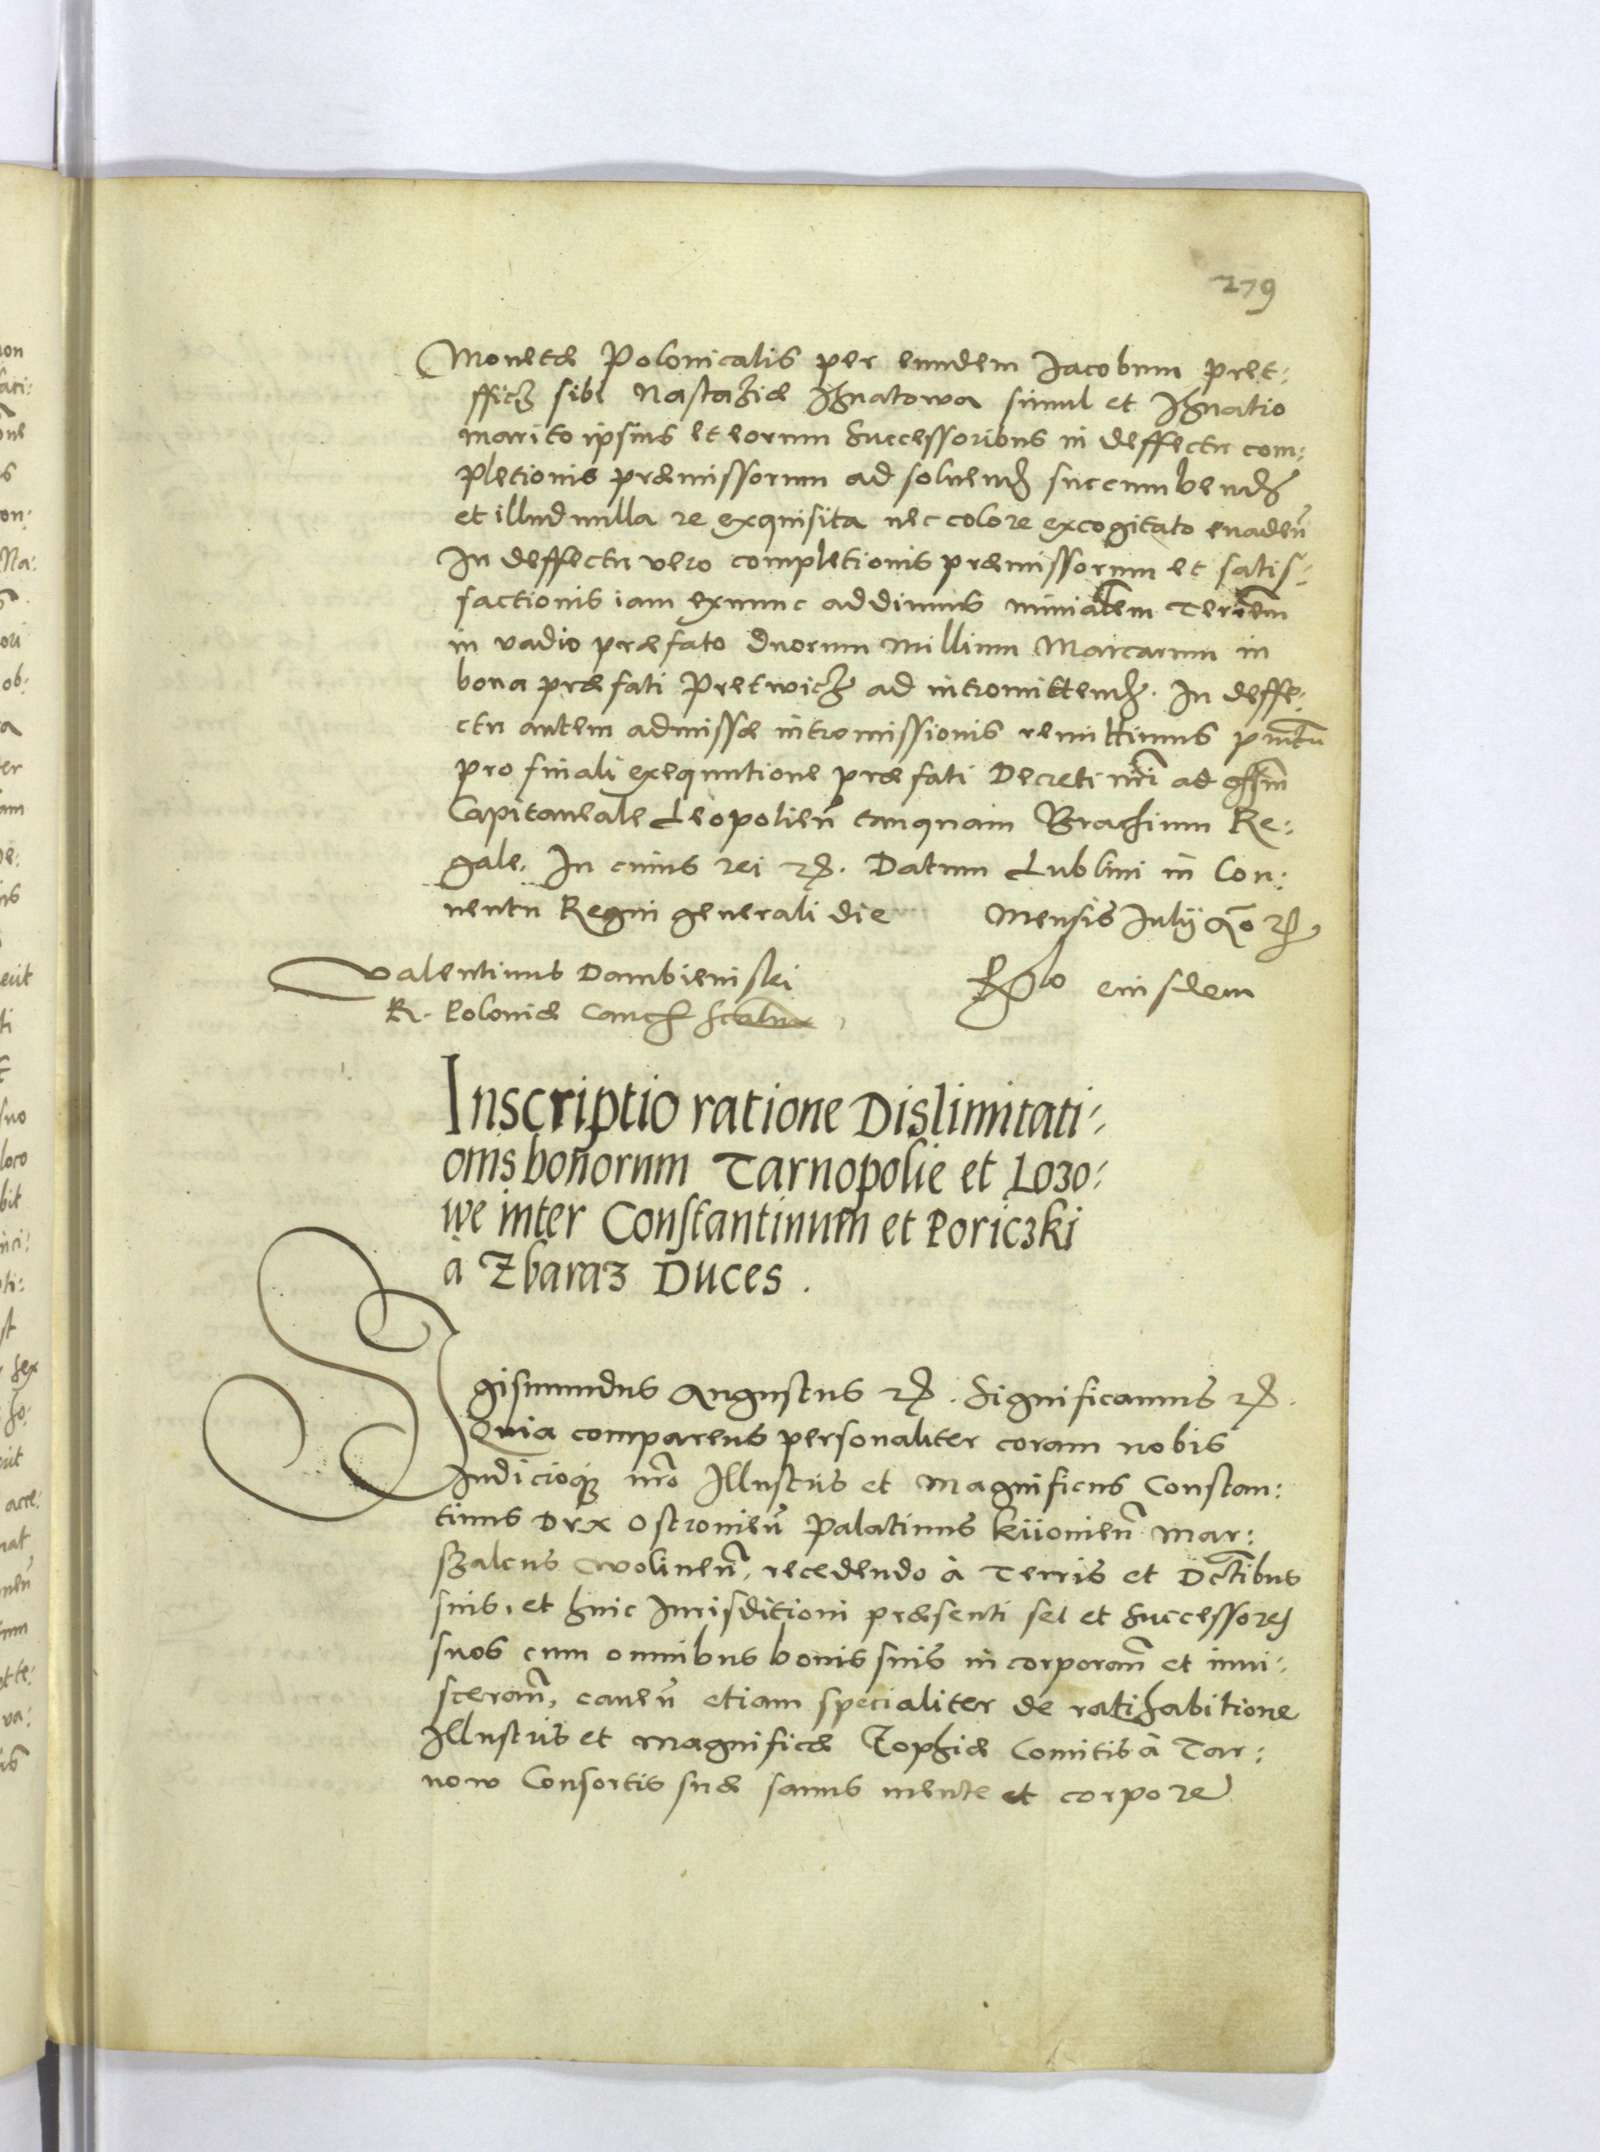 279
Monetæ Polonicalis per eundem Jacobum Pret:
fficz sibi Nastaziæ Ihnatowa simul et Ihnatio
marito ipsius et eorum successoribus in deffectu com:
pletionis præmissorum ad soluend succumbend
et illud nulla re exquisita nec colore excogitato euadeñ
In deffectu vero completionis præmissorum et satis:
factionis iam exnunc addimus Terrem
in vadio præfato duorum millium Marcarum in
bona præfati Pretwicz ad intromittend. In deffe:
ctu autem admissæ intromissionis remittimus
pro finali exequutione præfati Decreti nri ad offm
Capitaneale Leopolieñ tanquam Brachium Re:
gale. In cuius rei etc. Datum Lublini in Con:
uentu Regni generali die Mensis Iulij Ao etc
Valentinus Dambienski eiusdem
R. Poloniæ Canc
Inscriptio ratione Dislimitati:
onis bonorum Tarnopolie et Lozo:
we inter Constantinum et Poriczki
à Zbaraz Duces.
Sigismundus Augustus etc. Significamus etc.
Quia comparens personaliter coram nobis
Iudicioque nro Illustris et Magnificus Constan:
tinus Dux Ostrouieñ Palatinus Kiiouieñ Mar:
szalcus Wolineñ, recedendo à Terris et Dctibus
suis, et huic Iurisditioni præsenti se et successores
suos cum omnibus bonis suis incorporañ et inui:
scerañ, caueñ etiam specialiter de ratihabitione
Illustris et Magnificæ Zophiæ Comitis à Tar:
now Consortis suæ sanus mente et corpore